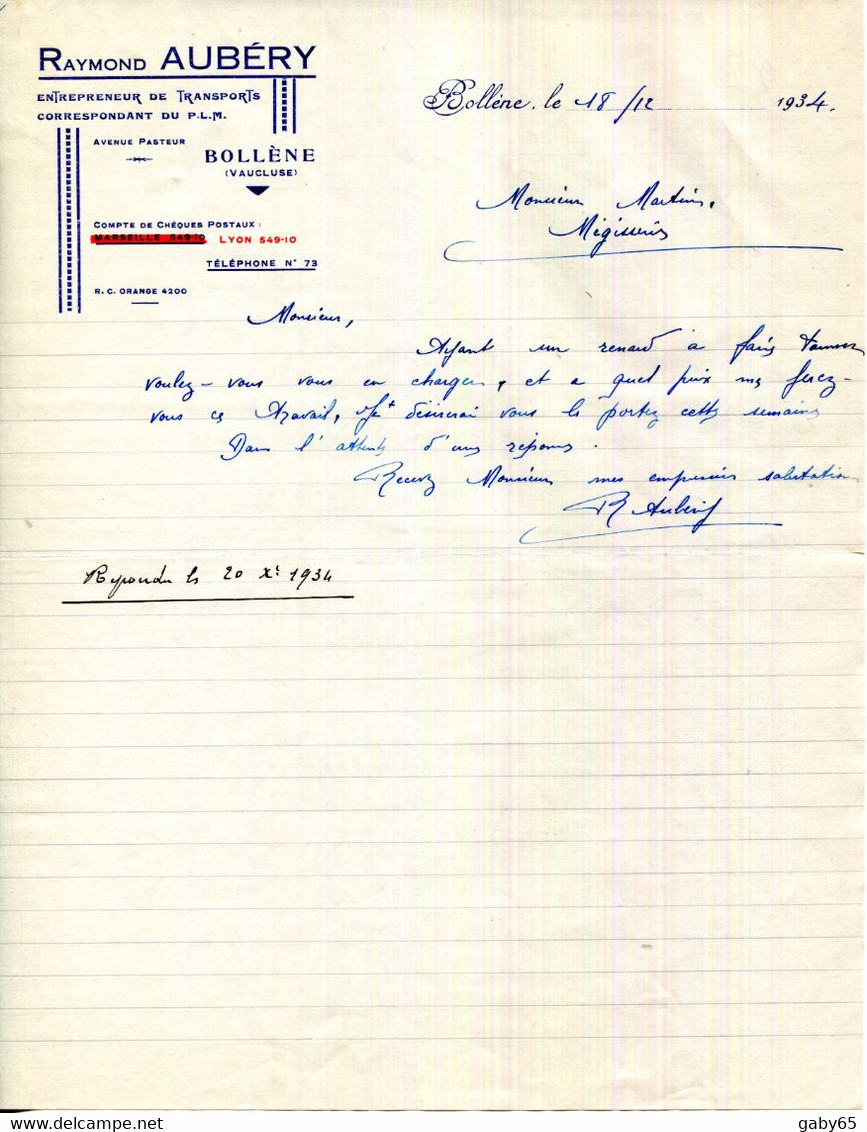 RAYMOND AUBÉRY
ENTREPRENEUR DE TRANSPORTS
CORRESPONDANT DU P.L.M.
AVENUE PASTEUR
BOLLÈNE
(VAUCLUSE)
COMPTE DE CHÈQUES POSTAUX :
MARSEILLE 549-10 LYON 549-10
TÉLÉPHONE N° 73
R. C. ORANGE 4200
Bollène, le 18/12 1934.
Monsieur Martin,
Mégisserie
Monsieur,
Ayant un renard à faire tanner
voulez-vous vous en charger, et a quel prix me ferez-
vous ce travail, désirerai vous le porter cette semaine
Dans l'attente d'une réponse.
Recevez Monsieur mes empressées salutations
R Aubéry
Repondu le 20 Xe 1934
delcampe.net
gaby65